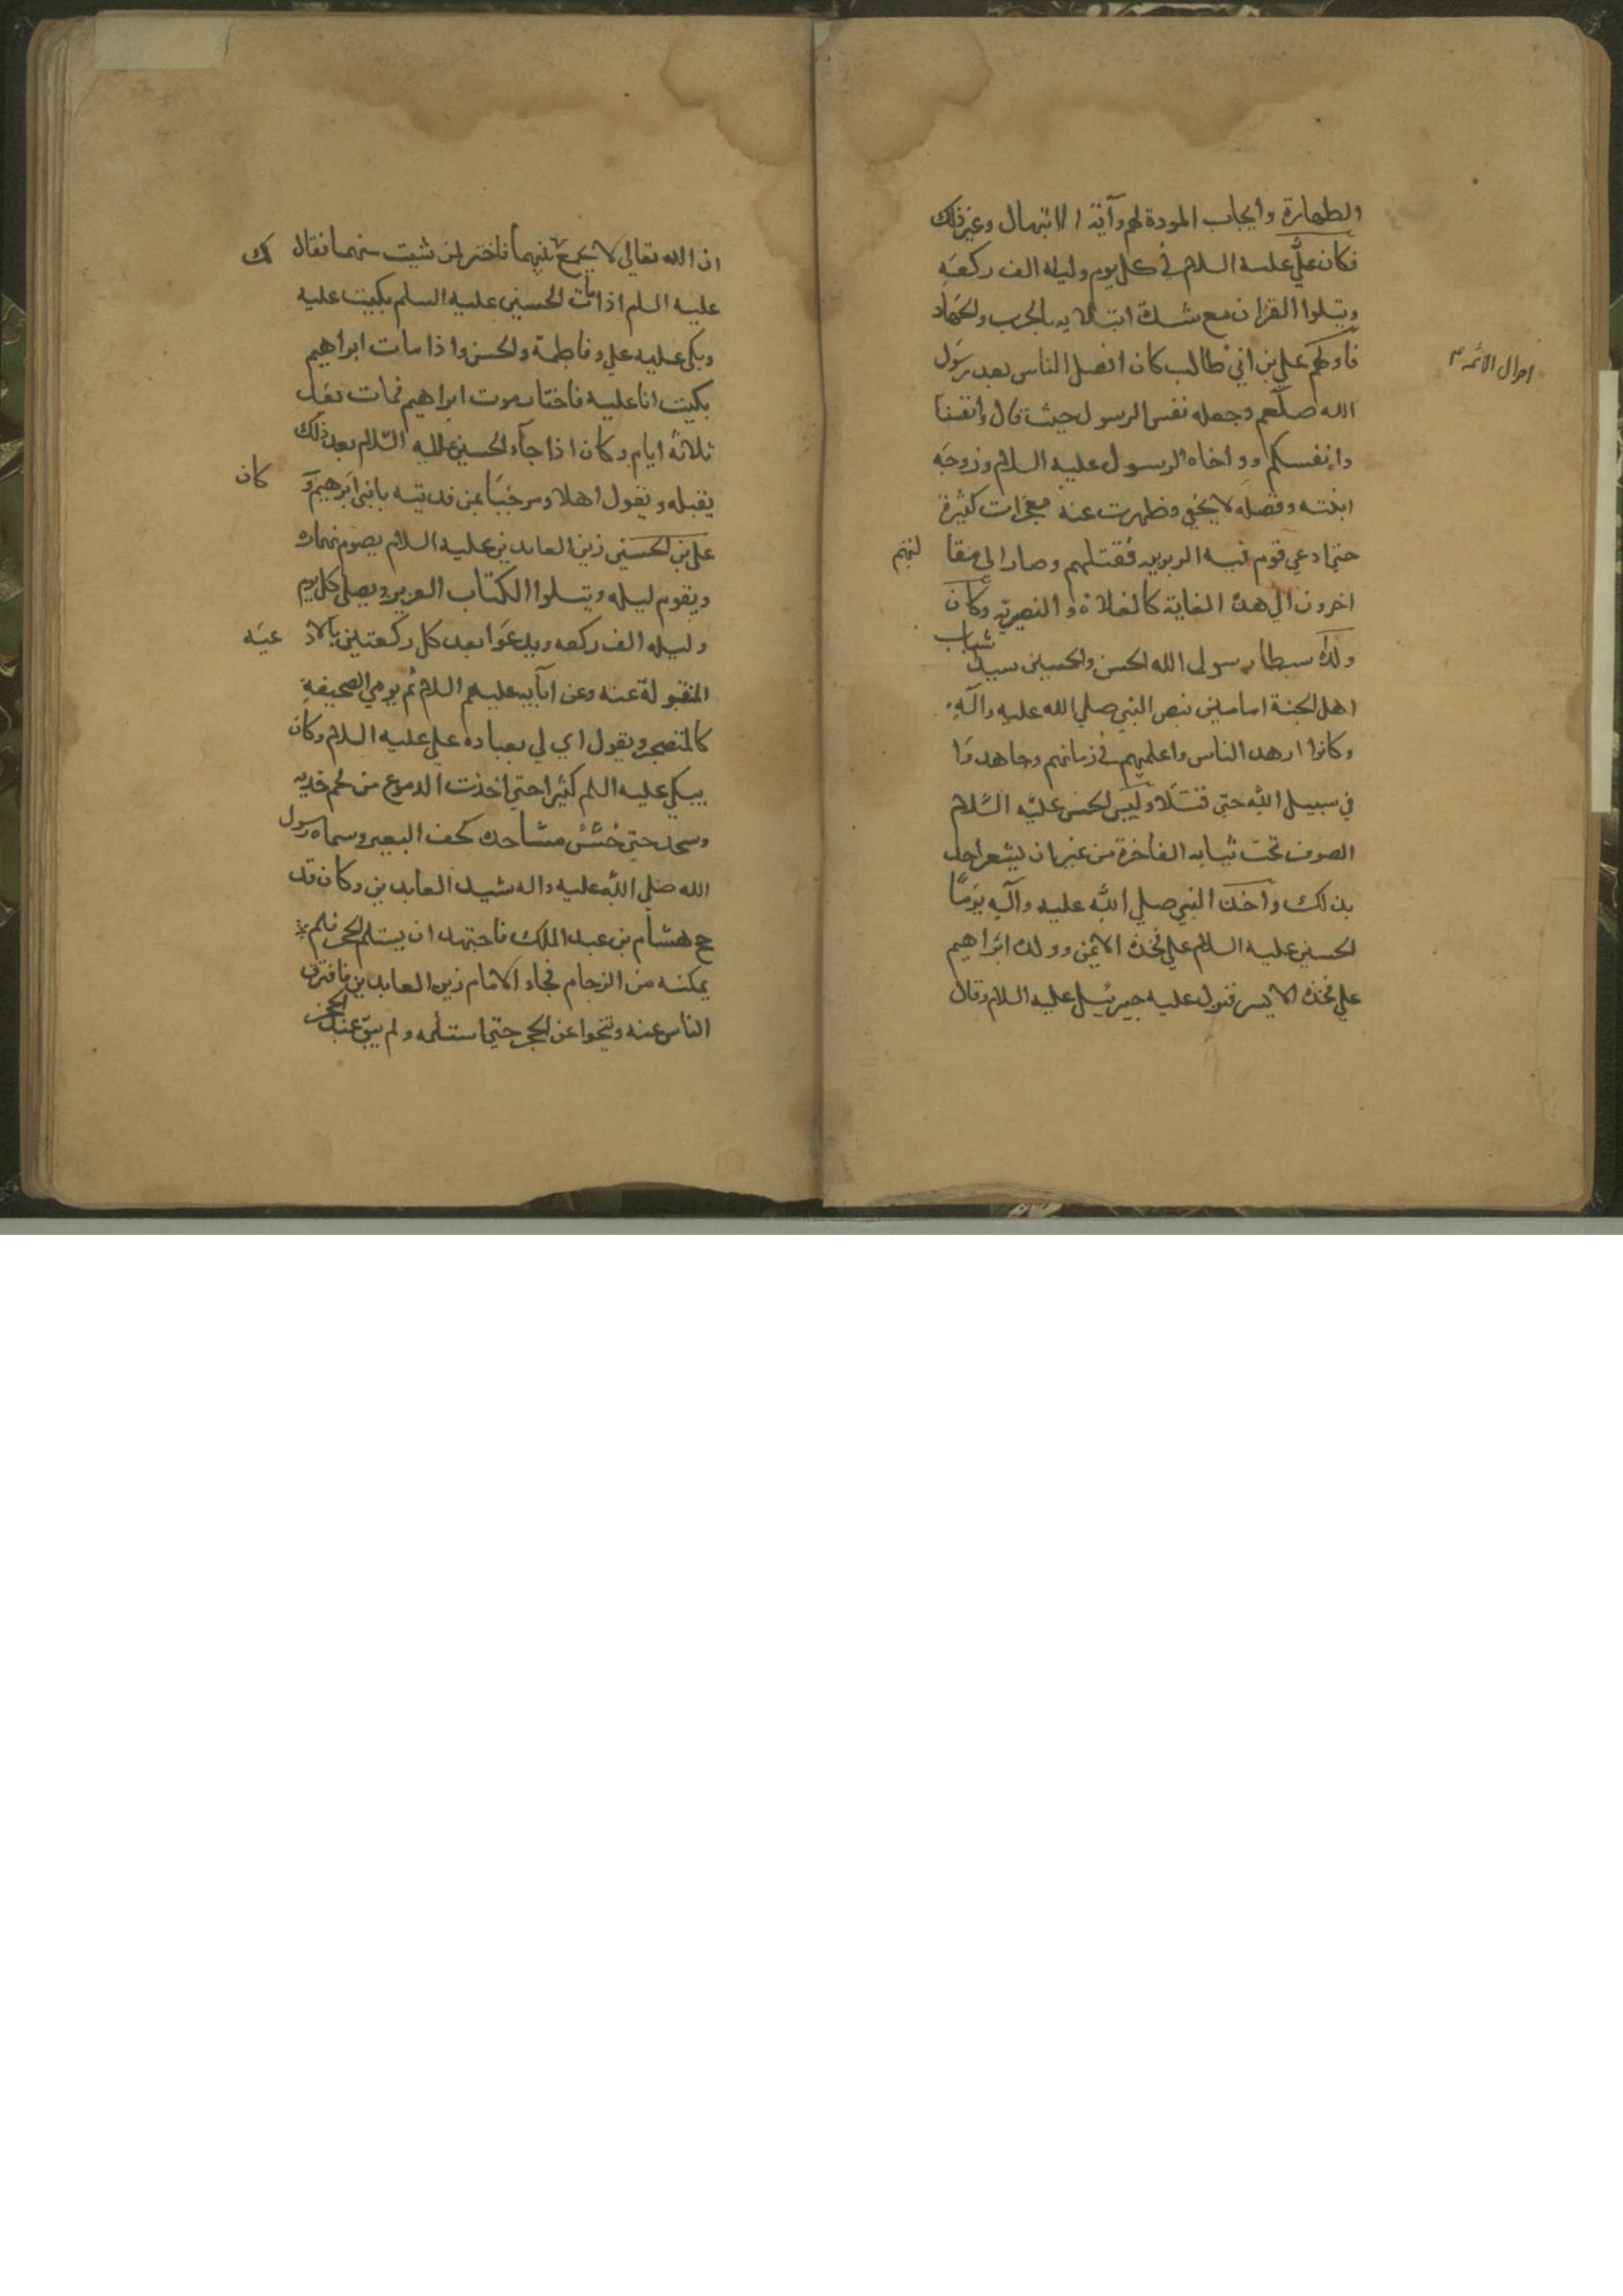 الطهارة وايجاب المودة لهم وآية الابتهال وغير ذلك
فكان علي عليه السلام في كل يوم وليله الف ركعة
ويتلوا القران مع شدة ابتلايه بالحرب والجهاد
فاولهم علي بن ابي طالب كان افضل الناس بعد رسول
احوال الائمه
الله صلعم وجعله نفس الرسول حيث قال وانفسنا
وانفسكم وواخاه الرسول عليه السلام وزوجه
ابنته وفضله لا يخفي وظهرت عنه معجزات كثيرة
حتي ادعي قوم فيه الربوبيه فقتلهم وصار الي مقا لتهم
اخرون الي هذه الغاية كالغلاة و النصيرية وكان
ولداه سبطا رسول الله الحسن والحسين سيدا شباب
اهل الجنة امامين بنص النبي صلي الله عليه وآله
وكانوا ازهد الناس واعلمهم في زمانهم وجاهدوا
في سبيل الله حتي قتلا ولبس الحسن عليه السلام
الصوف تحت ثيابه الفاخرة من غير ان يشعر احد
بذلك واخذ النبي صلي الله عليه وآله يوما
الحسين عليه السلام علي فخذه الايمن وولده ابراهيم
علي فخذه الايسر فنزل عليه جبرئيل عليه السلام وقال
ان الله تعالي لا يجمع بينهما فاختر من شيت منهما فقال
عليه السلم اذا مات الحسين عليه السلم بكيت عليه
وبكي عليه علي وفاطمة والحسن واذا مات ابراهيم
بكيت انا عليه فاختار موت ابراهيم فمات بعد
ثلاثة ايام وكان اذا جآء الحسين عليه السلام بعد ذلك
يقبله ويقول اهلا ومرحبا بمن فديته بابني ابرهيم و كان
علي بن الحسين زين العابدين عليه السلام يصوم نهاره
ويقوم ليله ويتلوا الكتاب العزيز ويصلي كل يوم
وليله الف ركعه ويدعوا بعد كل ركعتين بالاد عيه
المنقولة عنه وعن ابآيه عليهم السلام ثم يرمي الصحيفة
كالمتضجر ويقول اني لي بعباده علي عليه السلام وكان
يبكي عليه السلم كثيرا حتي اخذت الدموع من لحم خديه
وسجد حتي مساجده كف البعير وسماه رسول
الله صلي الله عليه واله سيد العابدين وكان قد
حج هشام بن عبد الملك فاجتهد ان يستلم الحجر فلم
يمكنه من الزحام فجاء الامام زين العابدين فافترق
الناس عنه وتنحوا عن الحجر حتي استلمه ولم يبق عند الحجر